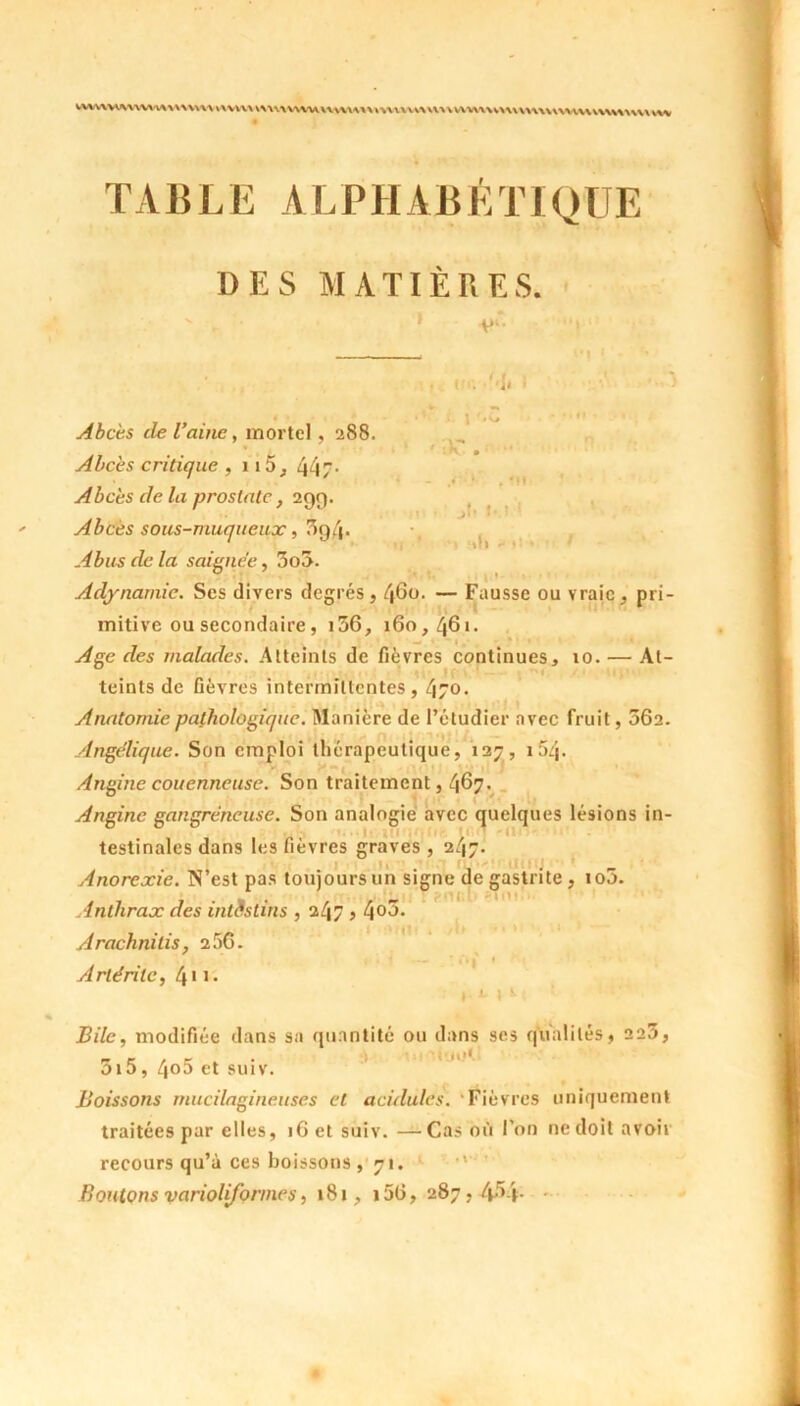 TABLE ALPHABÉTIQUE
DES MATIÈRES.
Abcès de l'aine, mortel, 288.
Abcès critique, 115, 447.
Abcès de la prostate, 299.
Abcès sous-muqueux, 394.
Abus de la saignée, 303.
Adynamie. Ses divers degrés, 460. — Fausse ou vraie, pri-
mitive ou secondaire, 136, 160, 461.
Age des malades. Atteints de fièvres continues, 10. — At-
teints de fièvres intermittentes, 470.
Anatomie pathologique. Manière de l'étudier avec fruit, 362.
Angélique. Son emploi thérapeutique, 127, 154.
Angine couenneuse. Son traitement, 467.
Angine gangréneuse. Son analogie avec quelques lésions in-
testinales dans les fièvres graves, 247.
Anorexie. N'est pas toujours un signe de gastrite, 103.
Anthrax des intestins, 247, 403.
Arachnitis, 256.
Artérite, 411.
Bile, modifiée dans sa quantité ou dans ses qualités, 223,
315, 405 et suiv.
Boissons mucilagineuses et acidules. Fièvres uniquement
traitées par elles, 16 et suiv. — Cas où l'on ne doit avoir
recours qu'à ces boissons, 71.
Boutons varioliformes, 181, 156, 287, 454.